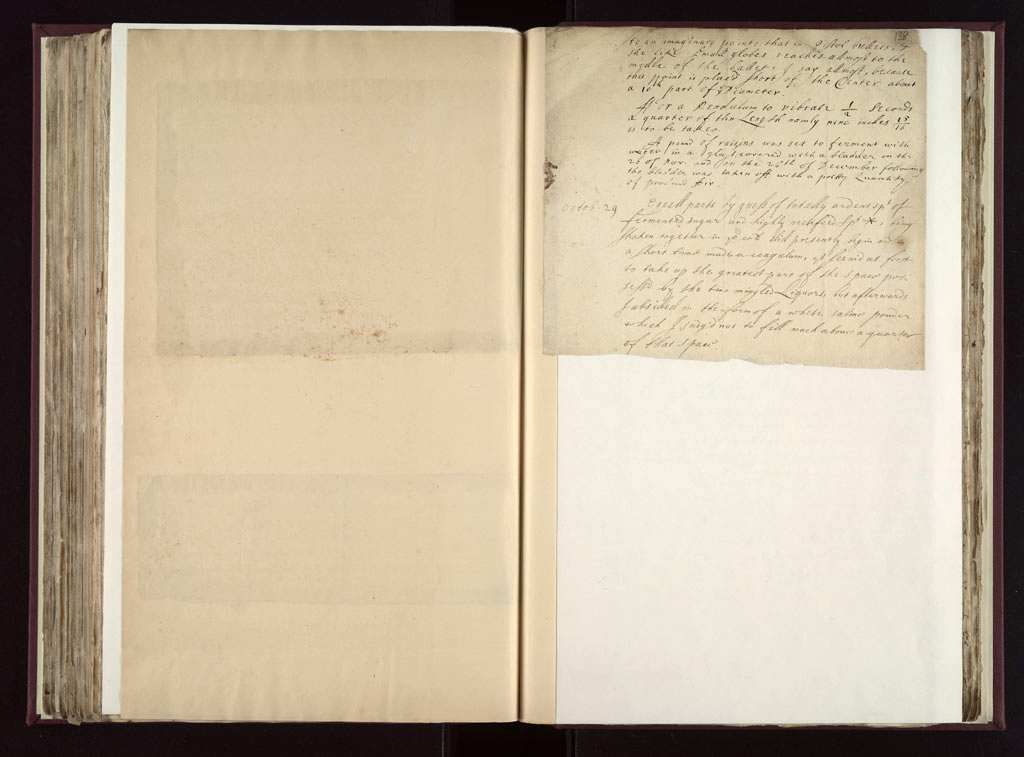 138
to an imaginary point, that in Pistol bullets, &
the like Small globes reaches allmost to the
midle of the bullet, I say allmost, because
this point is plac'd short of the Center about
a 10th part of ye Diameter
For a Pendulum to vibrate 1/2 Seconds
a quarter of the Length namly nine inches 15/16
is to be taken.
A pound of raisins was set to ferment with
water in a glass covered with a bladder on the
26 of Nov. and on the 26th of December following
the bladder was taken off with a pretty Quantity
of produc'd Air.
Octob. 29 Equall parts by guess of totally ardent spt of
fermented sugar and highly rectifyed Spt *, being
shaken together in ye cold did presently begin and in
a short time made a coagulum, yt seem'd at first
to take up the greatest part of the space poss-
ess'd by the two mingled Liquors, but afterwards
subsided in the form of a white saline powder
which I judg'd not to fill much above a quarter
of that space.